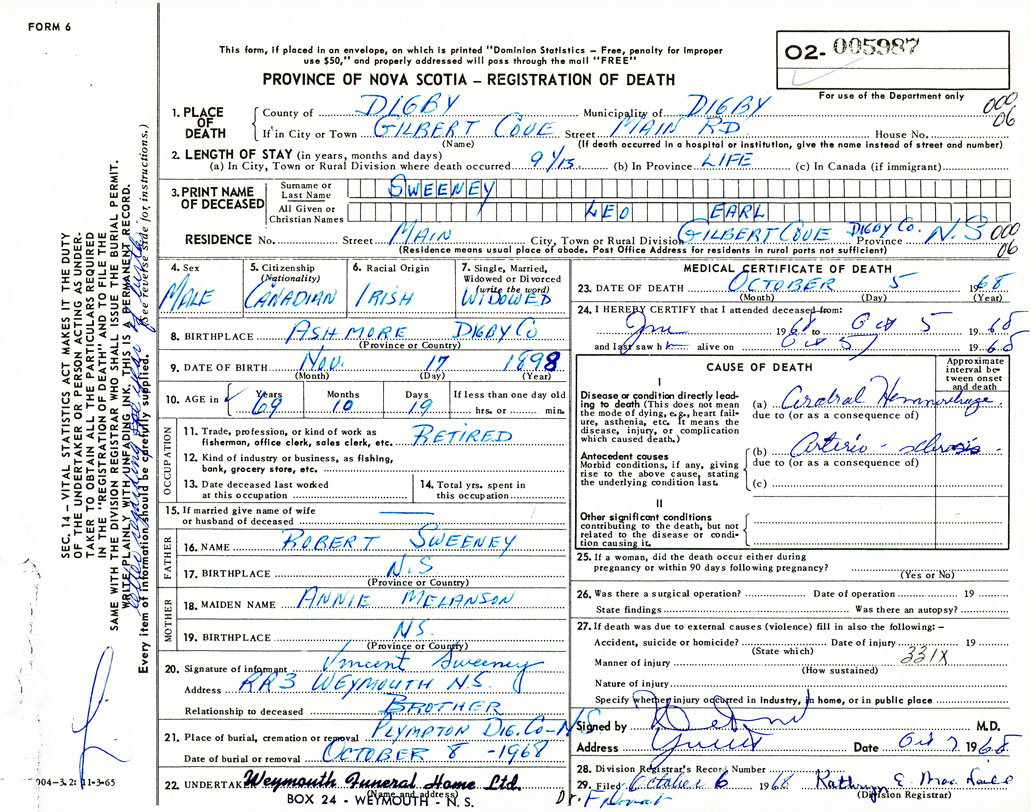 FORM 6
This form, if placed in an envelope, on which is printed "Dominion Statistics – Free, penalty for improper
use $50," and properly addressed will pass through the mail "FREE"
PROVINCE OF NOVA SCOTIA – REGISTRATION OF DEATH
O2- 005987
For use of the Department only
000
06
1. PLACE OF DEATH County of DIGBY Municipality of DIGBY
If in City or Town GILBERT COVE Street MAIN RD House No.
(Name) (If death occurred in a hospital or institution, give the name instead of street and number)
2. LENGTH OF STAY (in years, months and days)
(a) In City, Town or Rural Division where death occurred (b) In Province LIFE (c) In Canada (if immigrant)
3. PRINT NAME OF DECEASED
Surname or Last Name SWEENEY
All Given or Christian Names LEO EARL
RESIDENCE No. Street MAIN City, Town or Rural Division GILBERT COVE DIGBY Co. Province N.S 000
06
(Residence means usual place of abode. Post Office Address for residents in rural parts not sufficient)
4. Sex MALE
5. Citizenship (Nationality) CANADIAN
6. Racial Origin IRISH
7. Single, Married, Widowed or Divorced (write the word) WIDOWED
8. BIRTHPLACE ASHMORE DIGBY Co
(Province or Country)
9. DATE OF BIRTH NOV. 17 1898
(Month) (Day) (Year)
10. AGE in Years 69 Months 10 Days 19 If less than one day old hrs. or min.
OCCUPATION
11. Trade, profession, or kind of work as fisherman, office clerk, sales clerk, etc. RETIRED
12. Kind of industry or business, as fishing, bank, grocery store, etc.
13. Date deceased last worked at this occupation
14. Total yrs. spent in this occupation
15. If married give name of wife or husband of deceased
FATHER
16. NAME ROBERT SWEENEY
17. BIRTHPLACE N.S
(Province or Country)
MOTHER
18. MAIDEN NAME ANNIE MELANSON
19. BIRTHPLACE NS.
(Province or Country)
20. Signature of informant Vincent Sweeney
Address RR3 WEYMOUTH N.S.
Relationship to deceased BROTHER
21. Place of burial, cremation or removal PLYMPTON DIG. CO-N'S
Date of burial or removal OCTOBER 8 -1968
22. UNDERTAKER Weymouth Funeral Home Ltd.
(Name and address)
BOX 24 - WEYMOUTH - N. S.
MEDICAL CERTIFICATE OF DEATH
23. DATE OF DEATH OCTOBER 5 1968
(Month) (Day) (Year)
24. I HEREBY CERTIFY that I attended deceased from:
1968 to Oct 5 1968
and last saw h alive on Oct 5 1968
CAUSE OF DEATH
Approximate interval between onset and death
I
Disease or condition directly leading to death (This does not mean the mode of dying, e.g., heart failure, asthenia, etc. It means the disease, injury, or complication which caused death.)
(a) Cerebral Hemmorhage
due to (or as a consequence of)
Antecedent causes
Morbid conditions, if any, giving rise to the above cause, stating the underlying condition last.
(b) Arterio - sclerosis.
due to (or as a consequence of)
(c)
II
Other significant conditions contributing to the death, but not related to the disease or condition causing it.
25. If a woman, did the death occur either during pregnancy or within 90 days following pregnancy?
(Yes or No)
26. Was there a surgical operation? Date of operation 19
State findings Was there an autopsy?
27. If death was due to external causes (violence) fill in also the following: –
Accident, suicide or homicide? Date of injury 19
(State which)
Manner of injury 331X
(How sustained)
Nature of injury
Specify whether injury occurred in Industry, in home, or in public place
Signed by M.D.
Address Date Oct 7 1968
28. Division Registrar's Record Number
29. Filed October 6 1968 Kathryn E.
(Division Registrar)
Dr.
SEC. 14 – VITAL STATISTICS ACT MAKES IT THE DUTY
OF THE UNDERTAKER OR PERSON ACTING AS UNDER-
TAKER TO OBTAIN ALL THE PARTICULARS REQUIRED
IN THE "REGISTRATION OF DEATH" AND TO FILE THE
SAME WITH THE DIVISION REGISTRAR WHO SHALL ISSUE THE BURIAL PERMIT.
WRITE PLAINLY WITH UNFADING INK, THIS IS A PERMANENT RECORD.
Every item of information should be carefully supplied. (See reverse side for instructions.)
004-3.2: 11-3-65